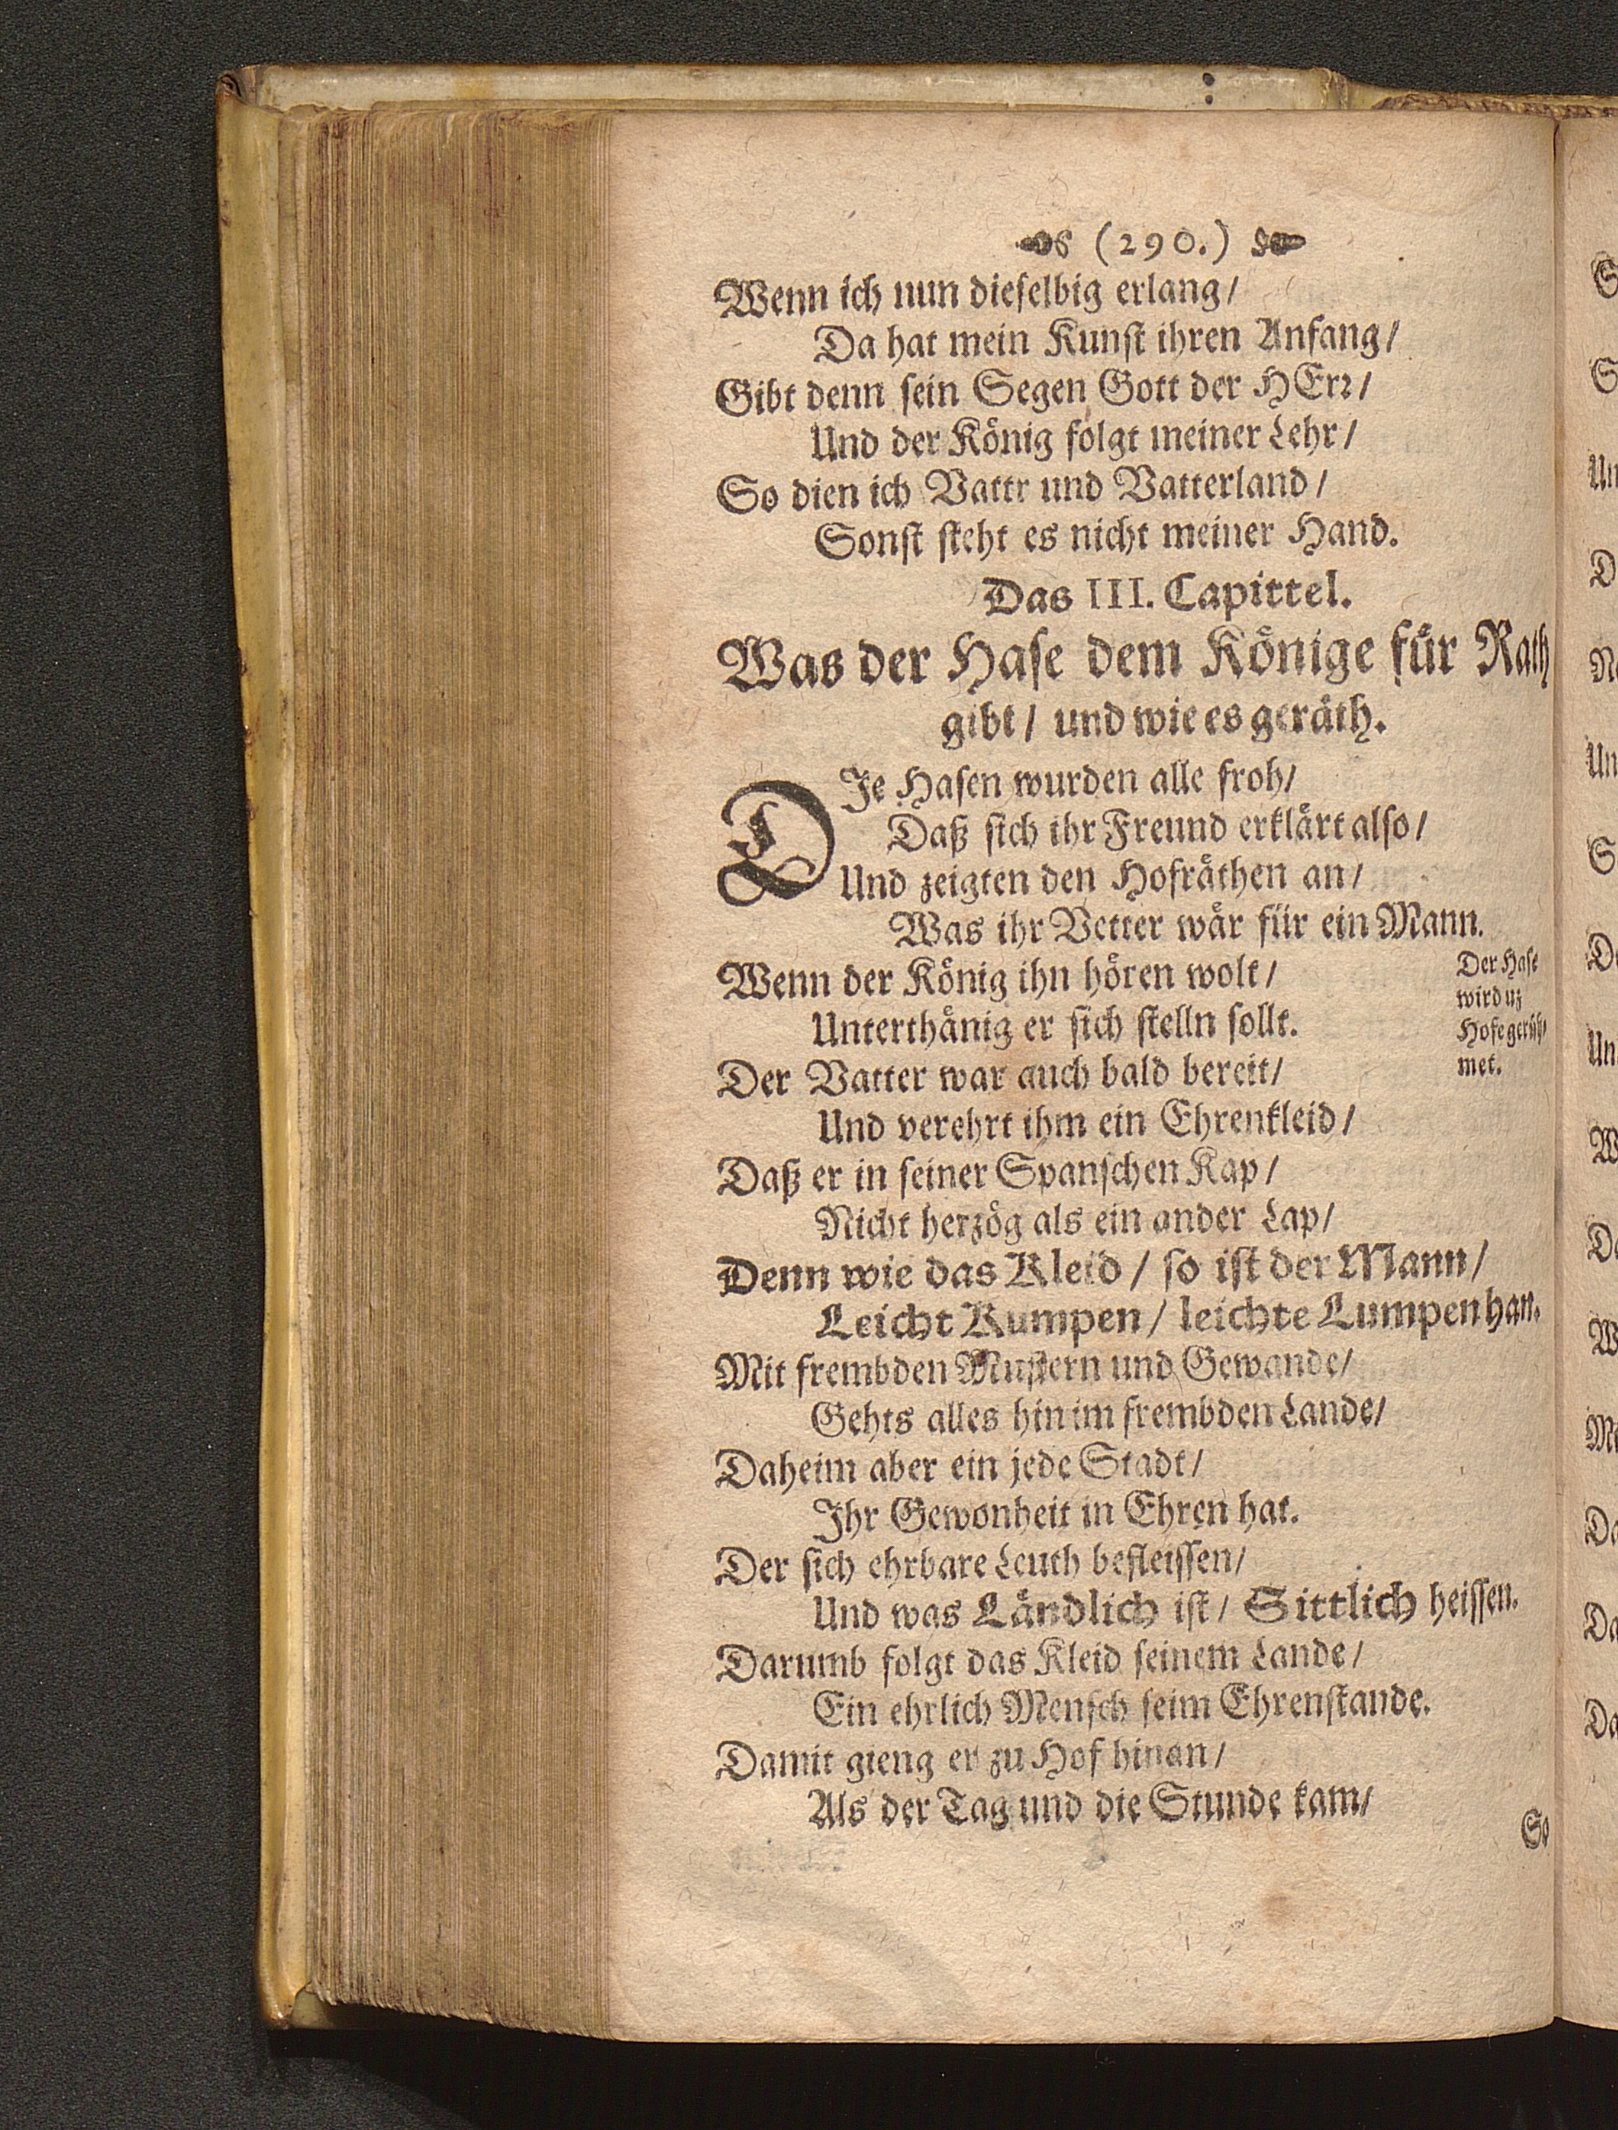 (290.)
Wenn ich nun dieſelbig erlang/
Da hat mein Kunſt ihren Anfang/
Gibt denn ſein Segen Gott der HErꝛ/
Und der König folgt meiner Lehr/
So dien ich Vattr und Vatterland/
Sonſt ſteht es nicht meiner Hand.
Das III. Capittel.
Was der Haſe dem Könige für Rath
gibt/ und wie es geräth.
DJe Haſen wurden alle froh/
Daß ſich ihr Freund erklärt alſo/
Und zeigten den Hofräthen an/
Was ihr Vetter wär für ein Mann.
Wenn der König ihn hören wolt/
Unterthänig er ſich ſtelln ſollt.
Der Vatter war auch bald bereit/
Und verehrt ihm ein Ehrenkleid/
Daß er in ſeiner Spanſchen Kap/
Nicht herzög als ein ander Lap/
Denn wie das Kleid/ ſo iſt der Mann/
Leicht Kumpen/ leichte Lumpen han.
Mit frembden Muſtern und Gewande/
Gehts alles hin im frembden Lande/
Daheim aber ein jede Stadt/
Jhr Gewonheit in Ehren hat.
Der ſich ehrbare Leuth befleiſſen/
Und was Ländlich iſt/ Sittlich heiſſen.
Darumb folgt das Kleid ſeinem Lande/
Ein ehrlich Menſch ſeim Ehrenſtande.
Damit gieng er zu Hof hinan/
Als der Tag und die Stunde kam/
So
Der Haſe
wird uz
Hofe gerüh
met.